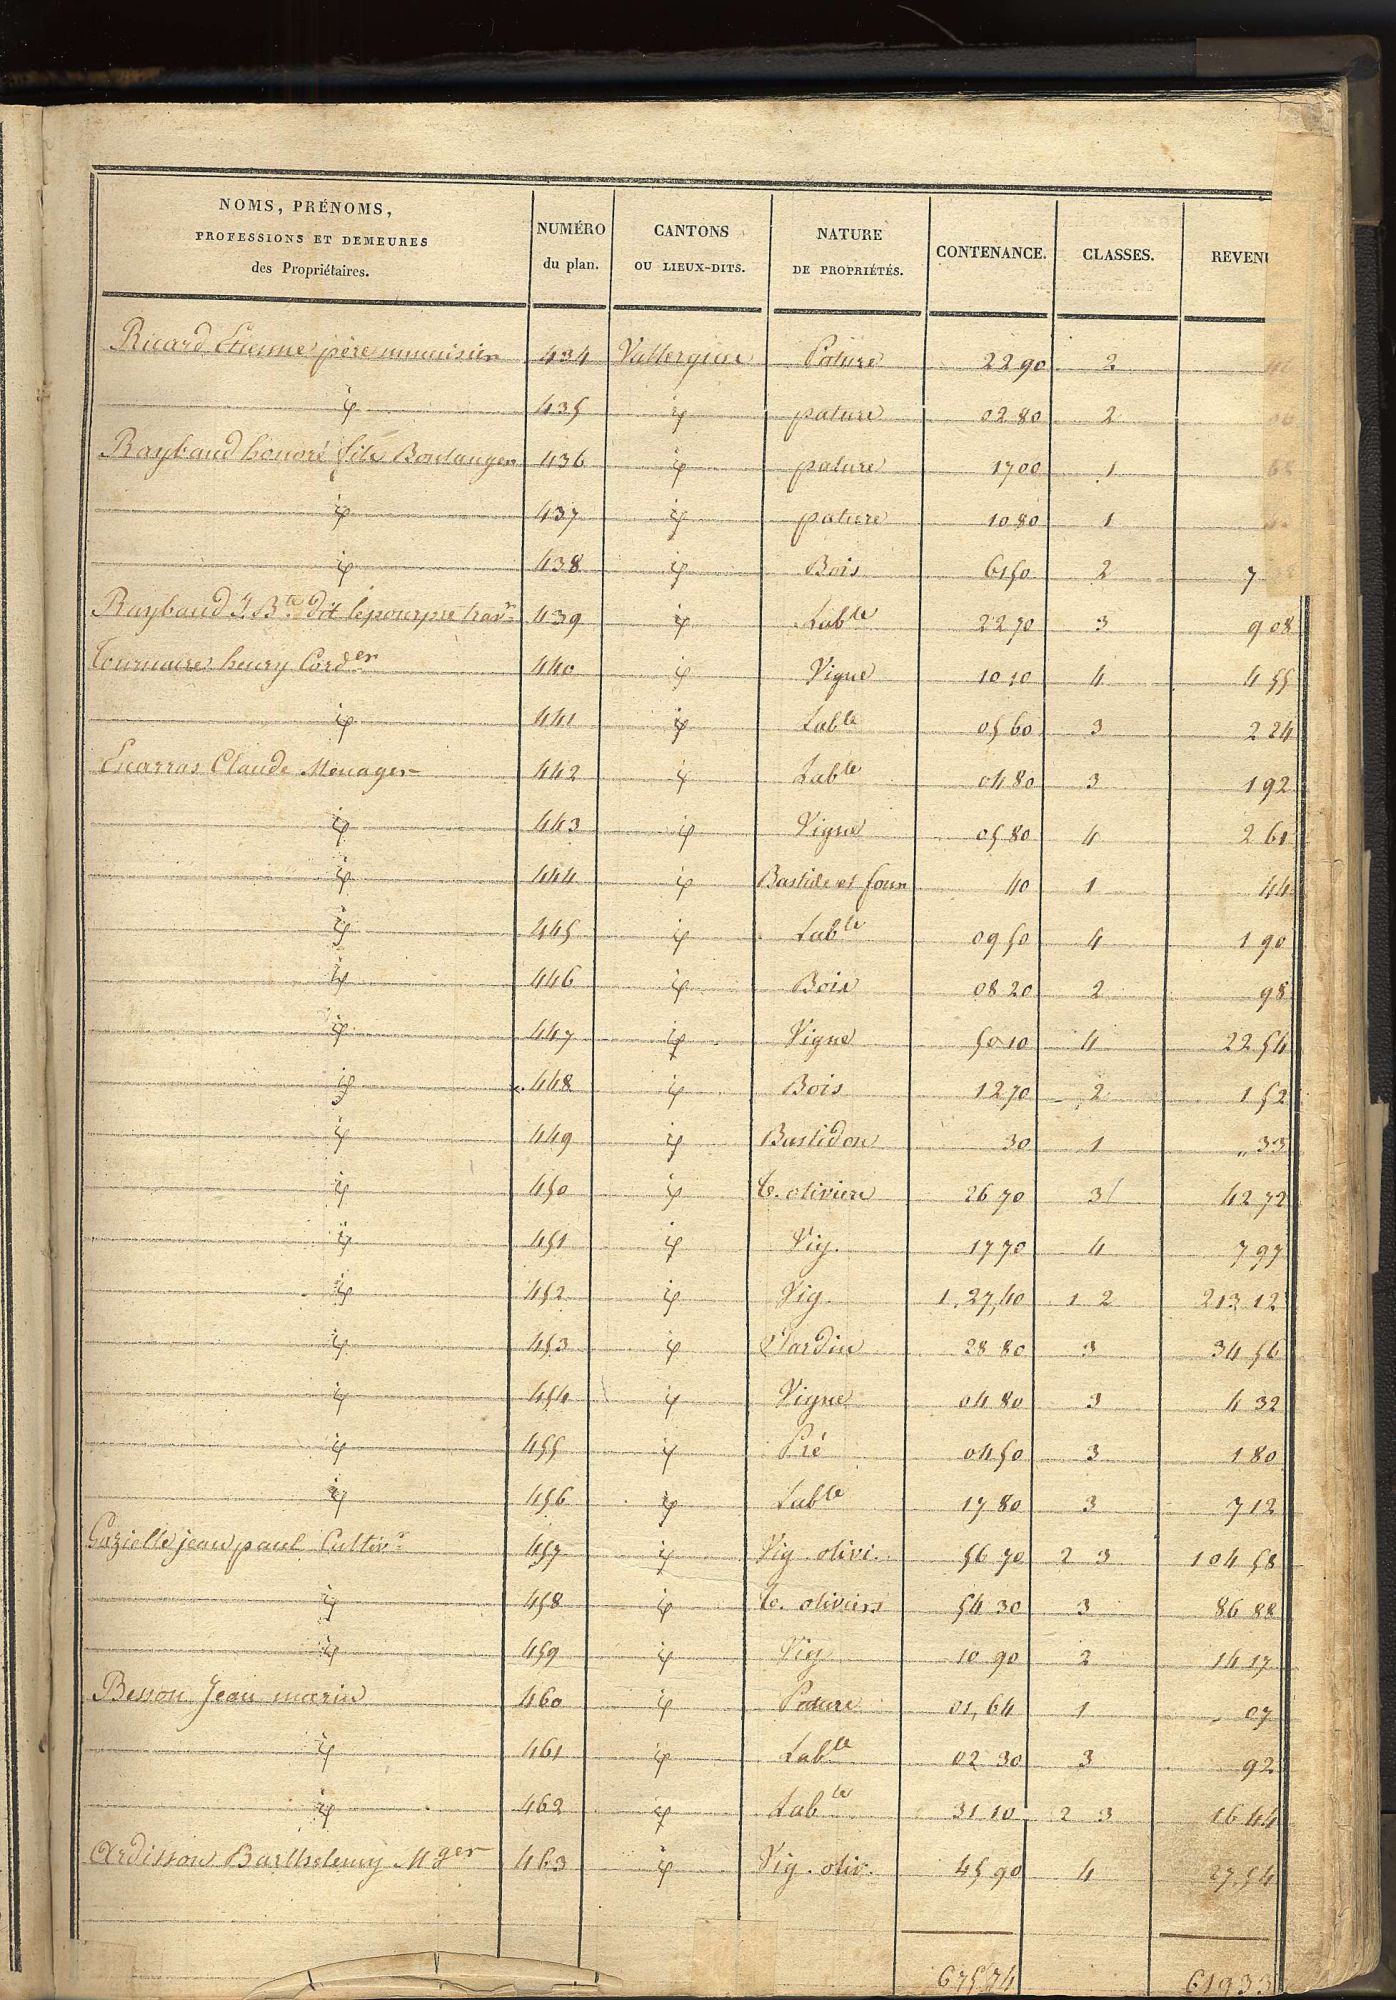 NOMS, PRÉNOMS,
PROFESSIONS ET DEMEURES
des Propriétaires.
NUMÉRO
du plan.
CANTONS
OU LIEUX-DITS.
NATURE
DE PROPRIÉTÉS.
CONTENANCE.
CLASSES.
REVENU
Ricard Etienne père 434 Vallergue Pature 22 90 2
id 435 id pature 02 80 2
Raybaud honoré fils Boulanger 436 id pature 17 00 1
id 437 id pature 10 80 1
id 438 id Bois 61 50 2 7
Raybaud J. Bte dit lepourpre travr 439 id Lable 22 70 3 9 08
Tournaire henry Corder 440 id Vigne 10 10 4 4 55
id 441 id Lable 05 60 3 2 24
Escarras Claude Menager 442 id Lable 04 80 3 1 92
id 443 id Vigne 05 80 4 2 61
id 444 id Bastide et four 40 1 44
id 445 id Lable 09 50 4 1 90
id 446 id Bois 08 20 2 98
id 447 id Vigne 50 10 4 22 54
id 448 id Bois 12 70 2 1 52
id 449 id Bastidon 30 1 „ 33
id 450 id t. oliviere 26 70 3 42 72
id 451 id Vig. 17 70 4 7 97
id 452 id Vig 1,27,40 1 2 213 12
id 453 id Jardin 28 80 3 34 56
id 454 id Vigne 04 80 3 4 32
id 455 id Pré 04 50 3 1 80
id 456 id Lable 17 80 3 7 12
Gazielle jean paul Cultivr 457 id Vig. olivi. 56 70 2 3 104 58
id 458 id t. oliviers 54 30 3 86 88
id 459 id Vig 10 90 2 14 17
Besson Jean marin 460 id Pature 01,64 1 07
id 461 id Lable 02 30 3 92
id 462 id Lable 31 10 2 3 16 44
Ardisson Barthelemy Mger 463 id Vig. oliv. 45 90 4 27,54
6 75 74 619 33